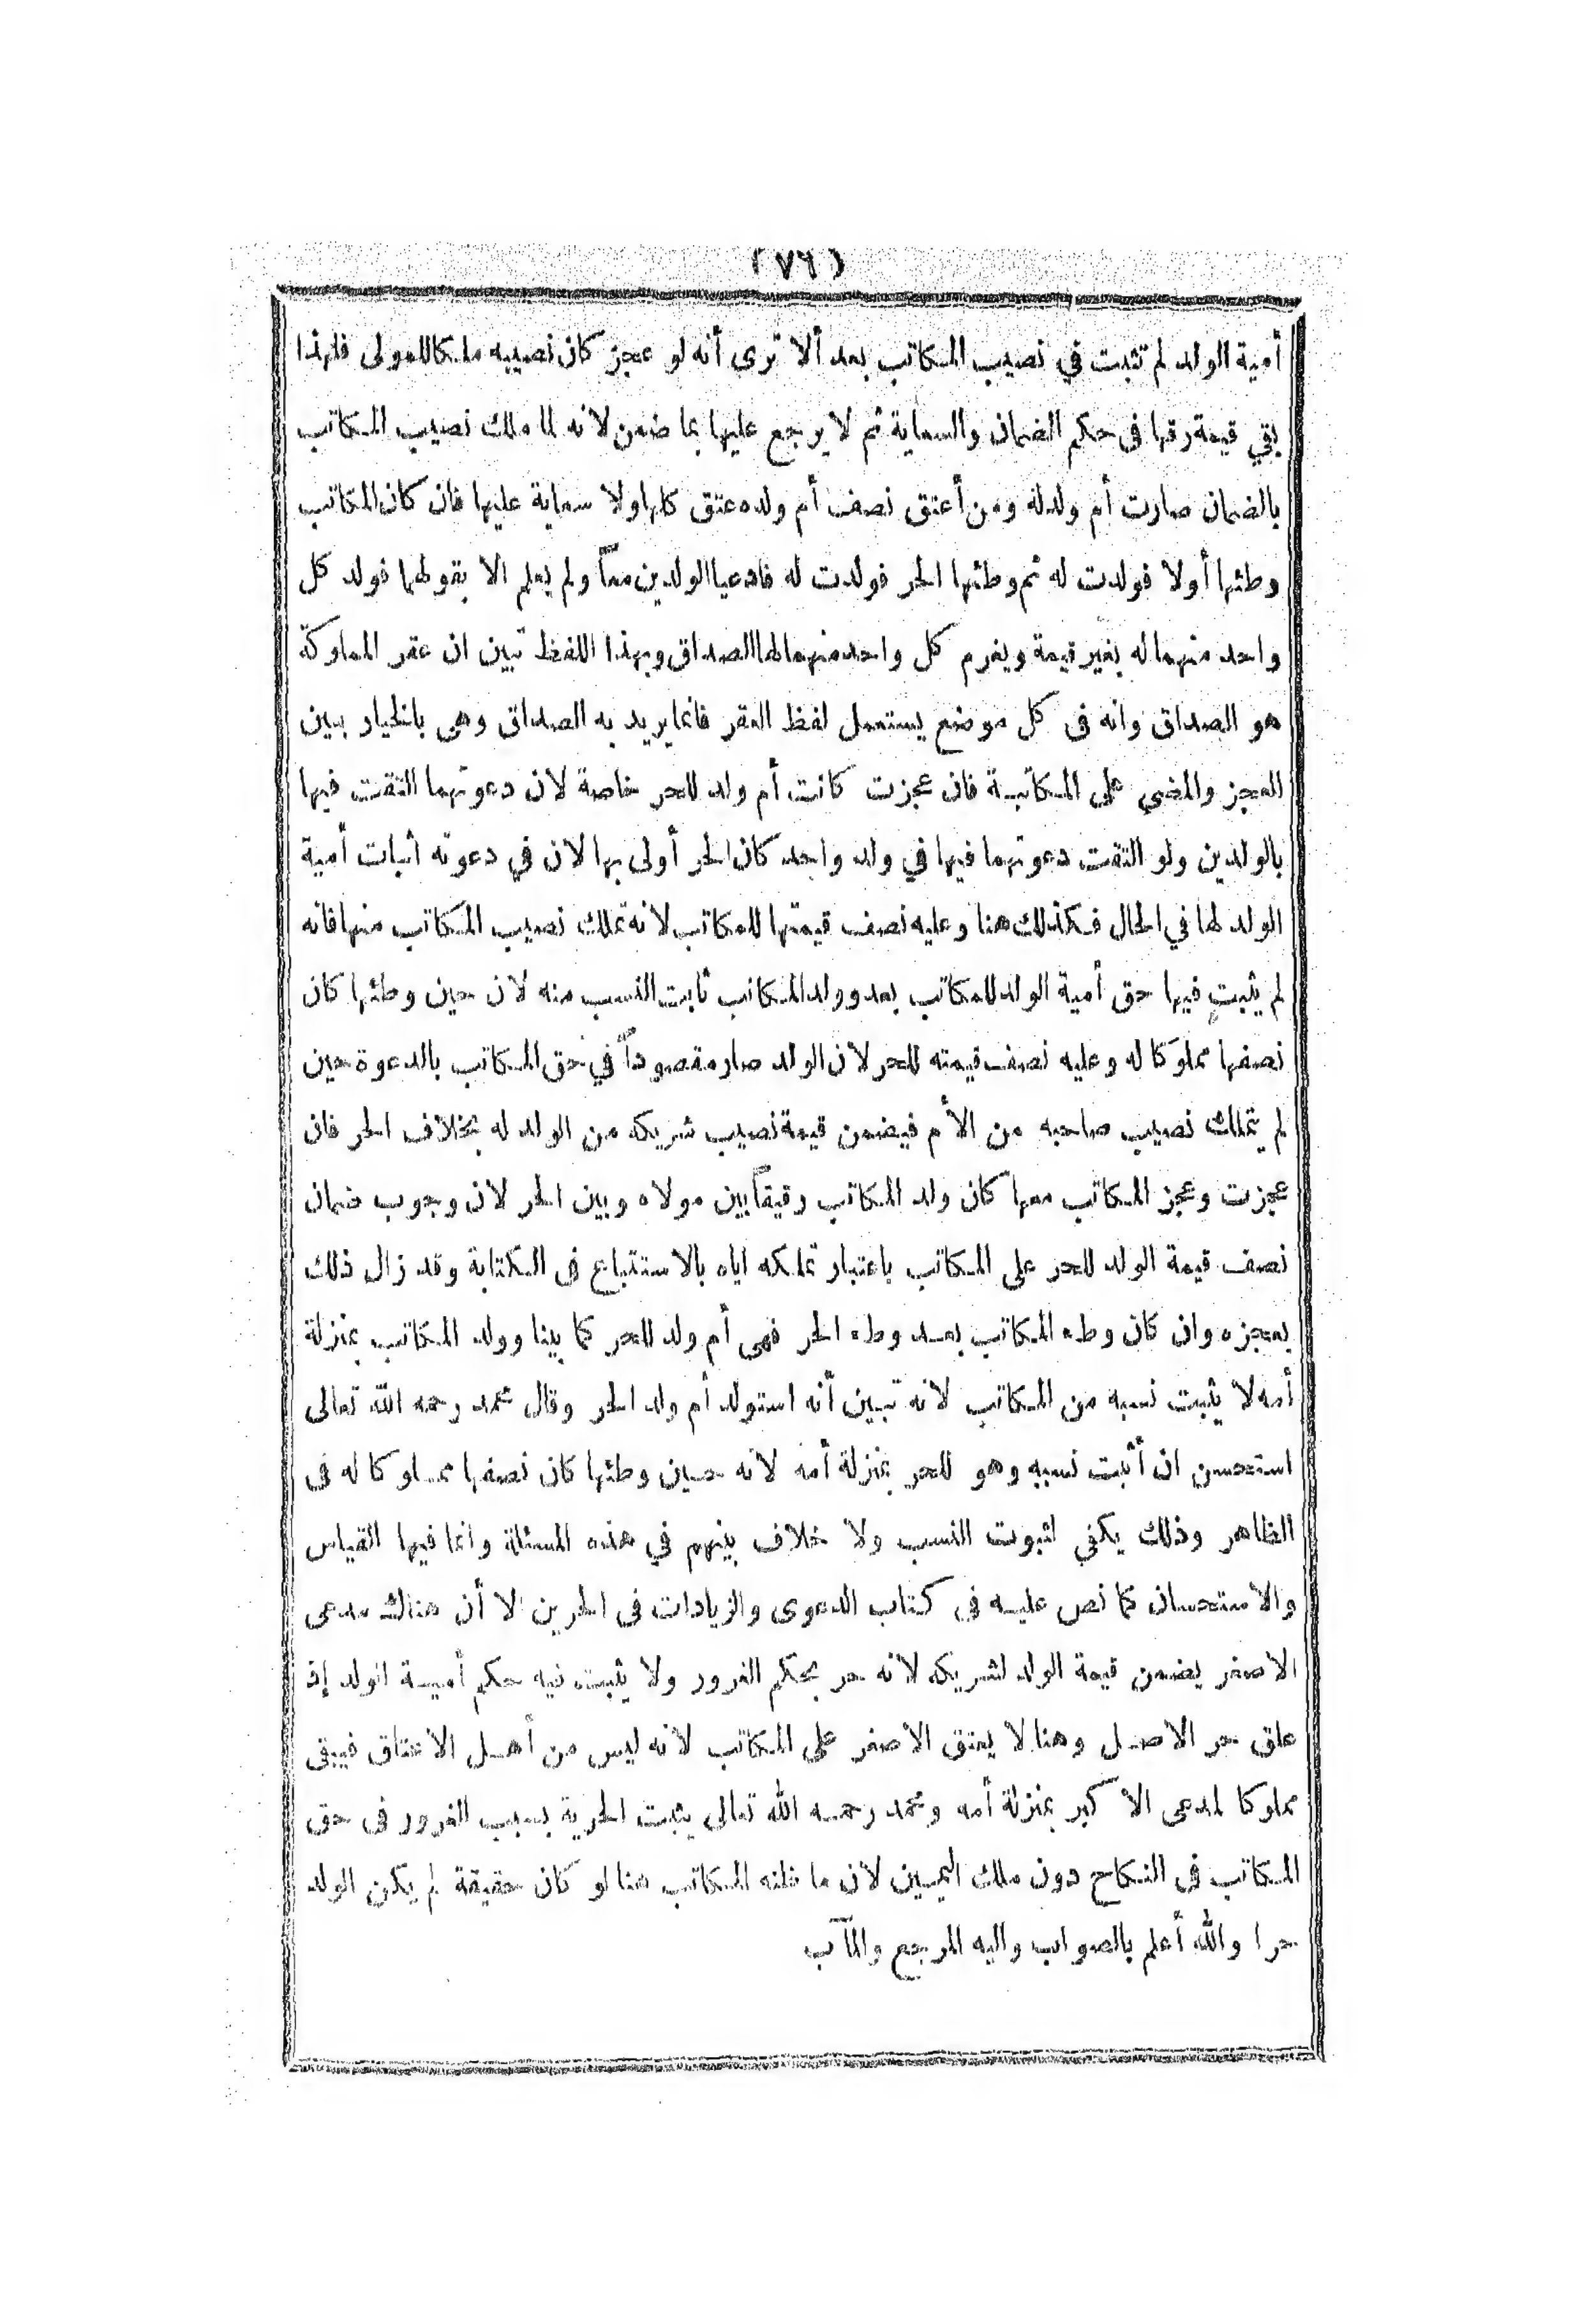 (٧٦)
أمية الولد لم تثبت في نصيب المكاتب بعد ألا ترى أنه لو عجز كان نصيبه ملكا للمولى فلهذا
بقي قيمة رقها فى حكم الضمان والسعاية ثم لا يرجع عليها بما ضمن لانه لما ملك نصيب المكاتب
بالضمان صارت أم ولد له ومن أعتق نصف أم ولده عتق كلها ولا سعاية عليها فان كان المكاتب
وطئها أولا فولدت له ثم وطئها الحر فولدت له فادعيا الولدين معاً ولم يعلم الا بقولهما فولد كل
واحد منهما له بغير قيمة ويغرم كل واحد منهما لها الصداق وبهذا اللفظ تبين ان عقر المملوكة
هو الصداق وانه فى كل موضع يستعمل لفظ العقر فانما يريد به الصداق وهي بالخيار بين
العجز والمضي على المكاتبة فان عجزت كانت أم ولد للحر خاصة لان دعوتهما التقت فيها
بالولدين ولو التقت دعوتهما فيها في ولد واحد كان الحر أولى بها لان في دعوته اثبات أمية
الولد لها في الحال فكذلك هنا وعليه نصف قيمتها للمكاتب لانه تملك نصيب المكاتب منها فانه
لم يثبت فيها حق أمية الولد للمكاتب بعد وولد المكاتب ثابت النسب منه لان حين وطئها كان
نصفها مملوكا له وعليه نصف قيمته للحر لان الولد صار مقصوداً في حق المكاتب بالدعوة حين
لم يتملك نصيب صاحبه من الأم فيضمن قيمة نصيب شريكه من الولد له بخلاف الحر فان
عجزت وعجز المكاتب معها كان ولد المكاتب رقيقاً بين مولاه وبين الحر لان وجوب ضمان
نصف قيمة الولد للحر على المكاتب باعتبار تملكه اياه بالاستتباع فى الكتابة وقد زال ذلك
بعجزه وان كان وطء المكاتب بعد وطء الحر فهى أم ولد للحر كما بينا وولد المكاتب بمنزلة
أمه لا يثبت نسبه من المكاتب لانه تبين أنه استولد أم ولد الحر وقال محمد رحمه الله تعالى
استحسن ان أثبت نسبه وهو للحر بمنزلة أمه لانه حين وطئها كان نصفها مملوكا له فى
الظاهر وذلك يكفي لثبوت النسب ولا خلاف بينهم في هذه المسئلة وانما فيها القياس
والاستحسان كما نص عليه فى كتاب الدعوى والزيادات فى الحرين الا أن هناك مدعى
الاصغر يضمن قيمة الولد لشريكه لانه حر بحكم الغرور ولا يثبت فيه حكم أمية الولد إذ
علق حر الاصل وهنا لا يعتق الاصغر على المكاتب لانه ليس من أهل الاعتاق فيبقى
مملوكا لمدعى الاكبر بمنزلة أمه ومحمد رحمه الله تعالى يثبت الحرية بسبب الغرور فى حق
المكاتب فى النكاح دون ملك اليمين لان ما ظنه المكاتب هنا لو كان حقيقة لم يكن الولد
حرا والله أعلم بالصواب واليه المرجع والمآب